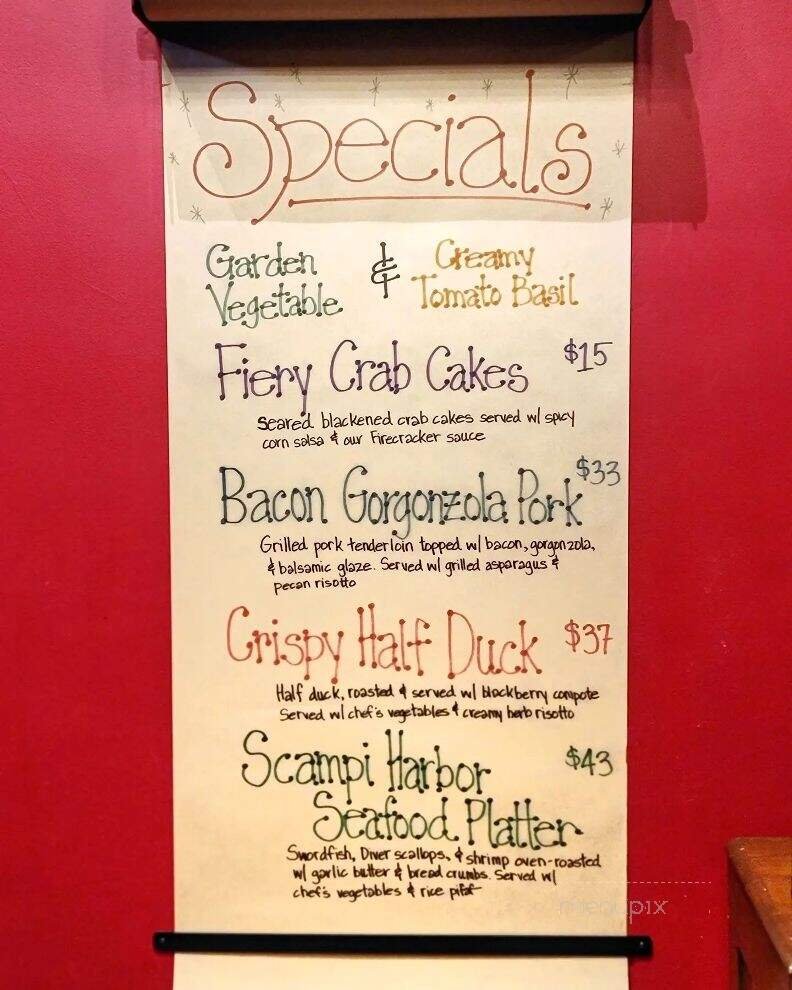 Specials
Garden & Creamy
Vegetable Tomato Basil
Fiery Crab Cakes $15
Seared blackened crab cakes served w/ spicy
corn salsa & our Firecracker sauce
$33
Bacon Gorgonzola Pork
Grilled pork tenderloin topped w/ bacon, gorgonzola,
& balsamic glaze. Served w/ grilled asparagus &
pecan risotto
Crispy Half Duck $37
Half duck, roasted & served w/ blackberry compote
Served w/ chef's vegetables & creamy herb risotto
Scampi Harbor $43
Seafood Platter
Swordfish, Diver scallops, & shrimp oven-roasted
w/ garlic butter & bread crumbs. Served w/
chef's vegetables & rice pilaf
menupix